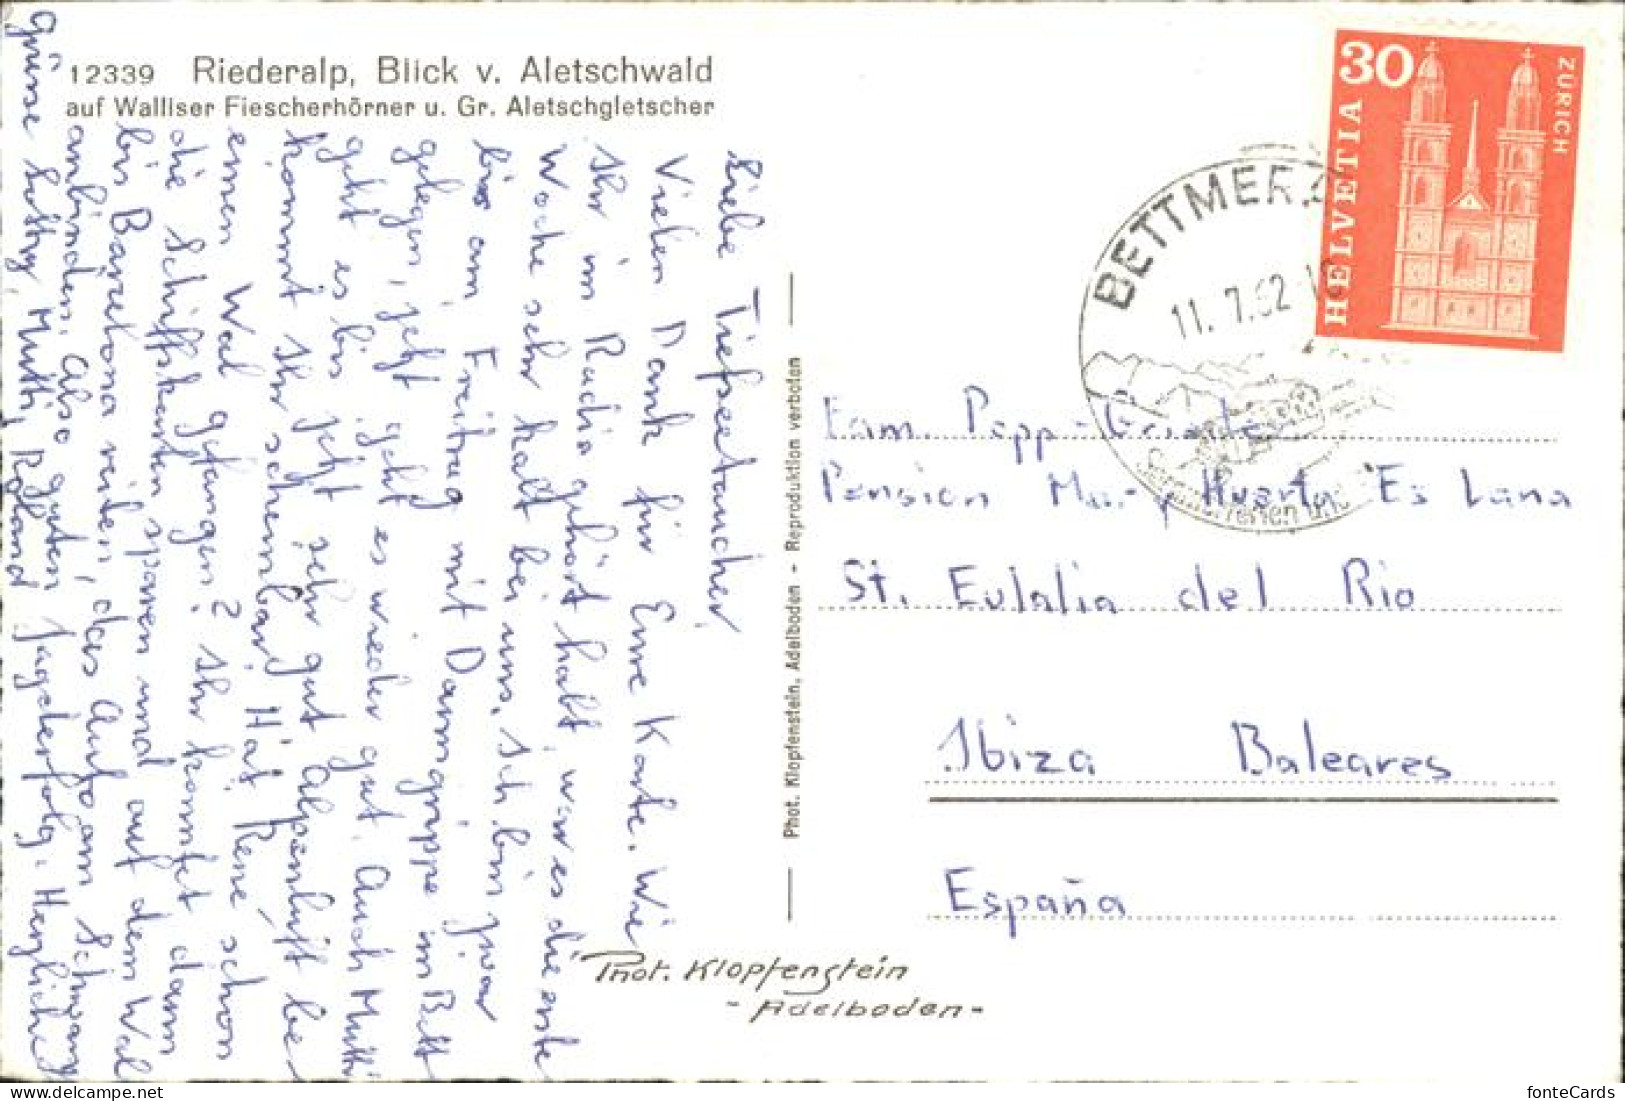 12339 Riederalp, Blick v. Aletschwald
auf Walliser Fiescherhörner u. Gr. Aletschgletscher
Liebe Tiefseetaucher,
Vielen Dank für Eure Karte. Wie
Ihr im Radio gehört habt, war es die erste
Woche sehr kalt bei uns. Ich bin zwar
bis am Freitag mit Darmgrippe im Bett
gelegen, jetzt geht es wieder gut. Auch Mutti
geht es bis jetzt sehr gut. Alpenluft be-
kommt Ihr scheinbar. Hat René schon
einen Wal gefangen? Ihr könntet dann
die Schiffskarten sparen und auf dem Wal
bis Barcelona reiten, das Auto am Schwanz
anbinden. Also guten Jagderfolg. Herzliche
grüsse Mutti, Roland
Phot. Klopfenstein, Adelboden - Reproduktion verboten
Phot. Klopfenstein
- Adelboden -
HELVETIA
30
ZÜRICH
BETTMERA
11. 7. 62
Fam. Popp-
Pension Huerta Es Cana
St. Eulalia del Rio
Ibiza Baleares
España
fonteCards